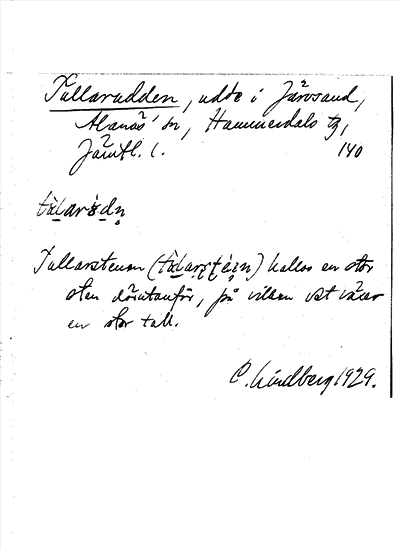 Tallarudden, udde i Järvsand,
Alanäs sn, Hammerdals tg,
Jämtl. l. 140
Tallarsteinn ( ) kallas en stor
sten därutanför, på vilken det växer
en stor tall.
C. Lindberg 1929.